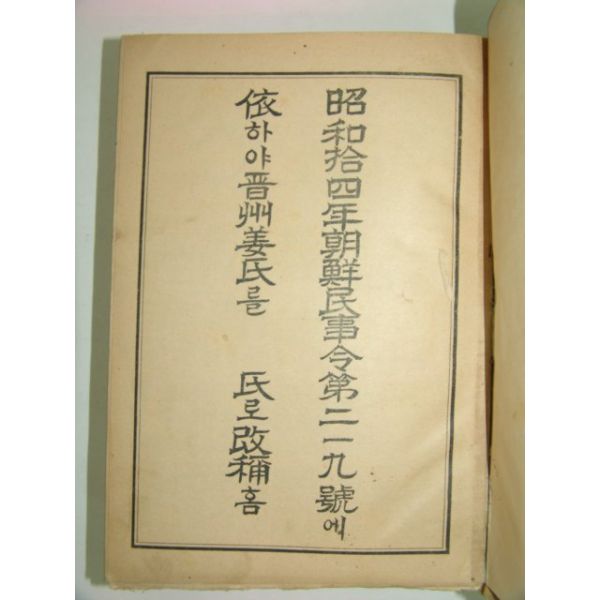 昭和拾四年朝鮮民事令第二一九號에
依하야晋州姜氏를　　氏로改稱홈